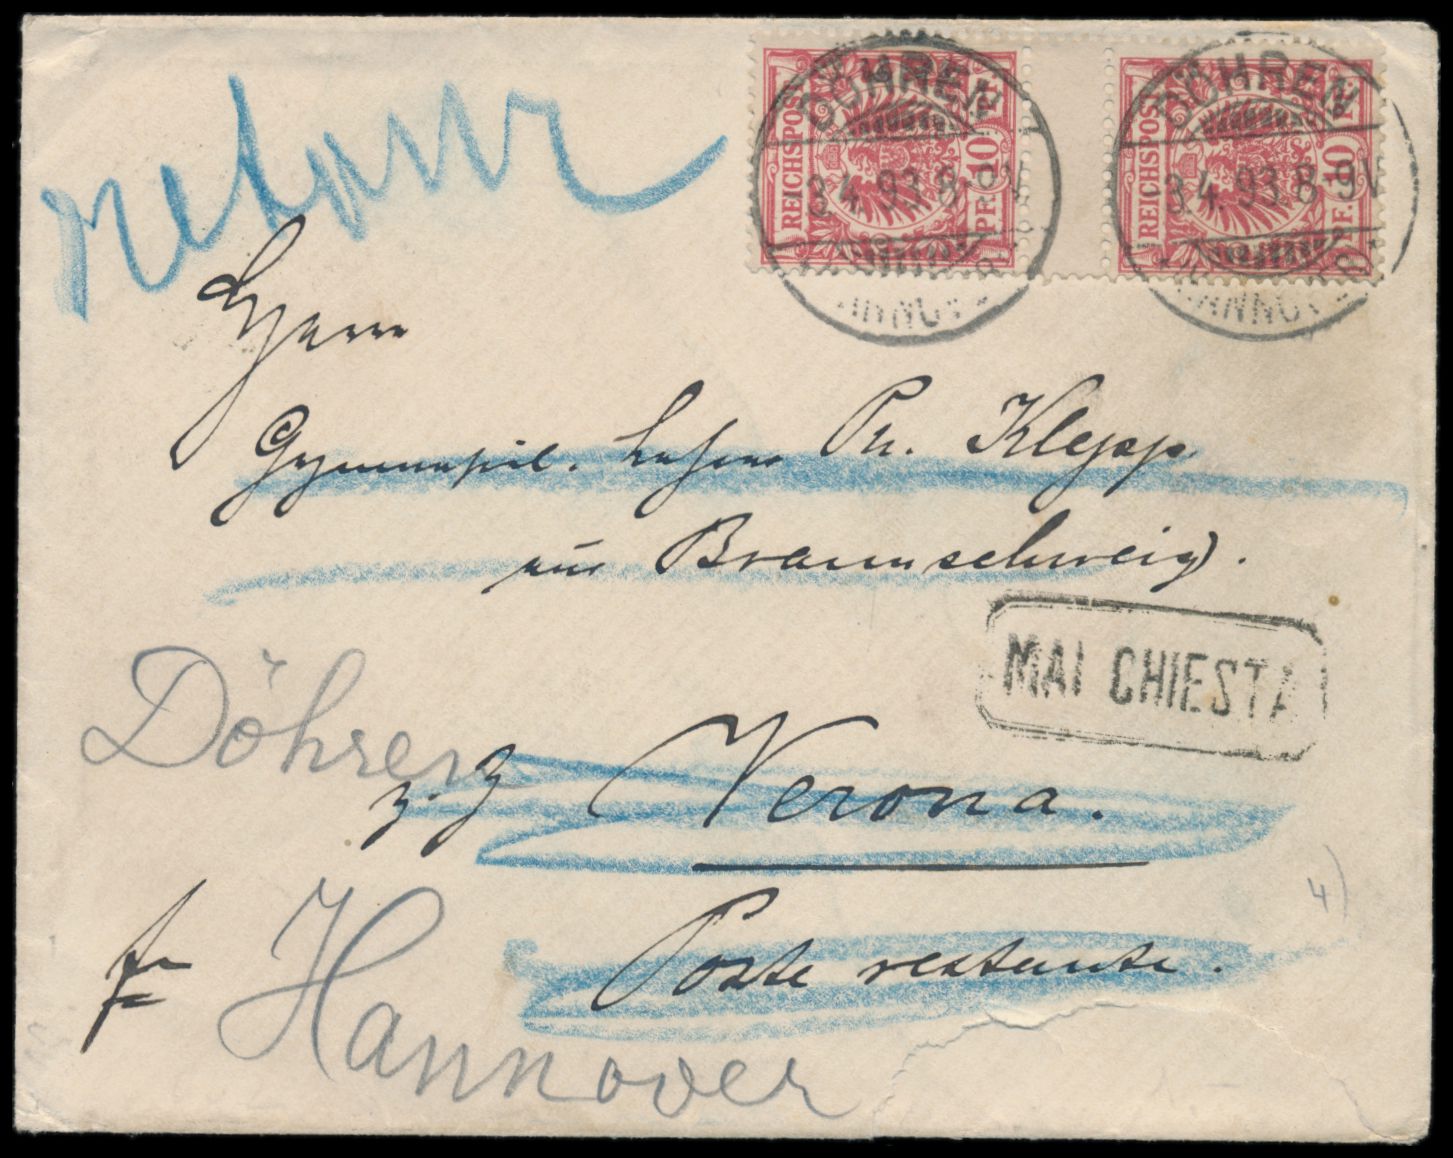 retour
REICHSPOST 10 PF.
REICHSPOST 10 PF.
DÖHREN
3.4.93.8-9V
HANNOVER
DÖHREN
3.4.93.8-9V
HANNOVER
Herrn
Gymnasial. Lehrer Ph. Klepp
aus Braunschweig.
MAI CHIESTA
Döhren
z. Z Verona.
fr
Hannover
Poste restante.
4)